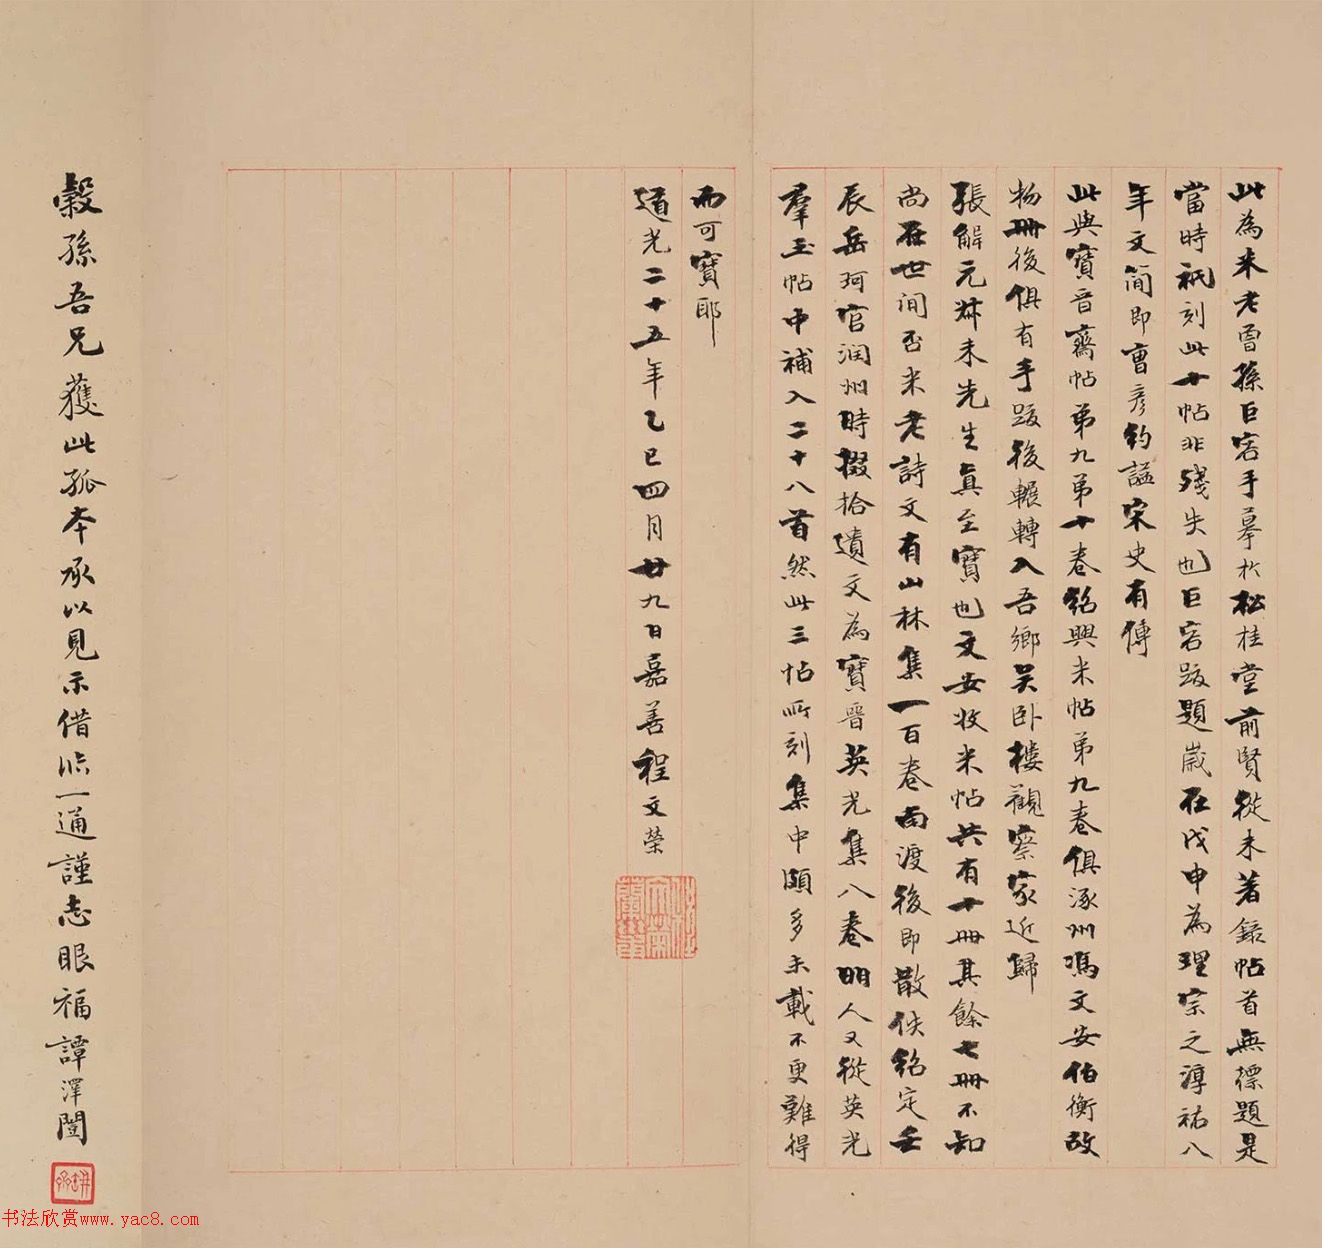 此為米老曾孫巨容手摹於松桂堂前賢從未著錄帖首無標題是
當時祇刻此十帖非殘失也巨容跋題歲在戊申為理宗之淳祐八
年文簡即曹彥約諡宋史有傳
此與寶晉齋帖弟九弟十卷紹興米帖弟九卷俱涿州馮文安伯衡故
物冊後俱有手跋後輾轉入吾鄉吴卧樓觀察家近歸
張解元叔未先生真至寶也文安收米帖共有十冊其餘七冊不知
尚在世间否米老詩文有山林集一百卷南渡後即散佚紹定壬
辰岳珂官润州時掇拾遺文為寶晉英光集八卷明人又從英光
羣玉帖中補入二十八首然此三帖所刻集中頗多未載不更難得
而可寶耶
道光二十五年乙巳四月廿九日嘉善程文榮
穀孫吾兄獲此孤本承以見示借臨一通謹志眼福譚澤闓
书法欣赏www.yac8.com